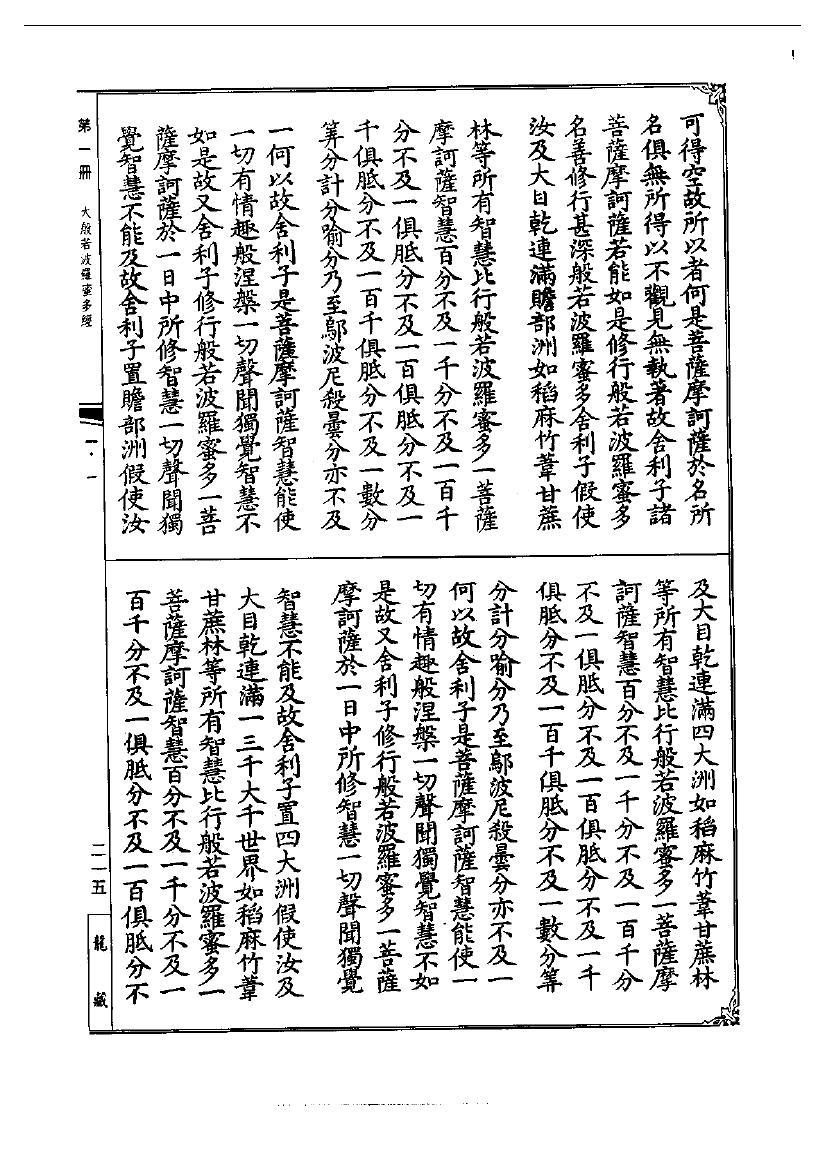 可得空故所以者何是菩薩摩訶薩於名所
名俱無所得以不觀見無執著故舍利子諸
菩薩摩訶薩若能如是修行般若波羅蜜多
名善修行甚深般若波羅蜜多舍利子假使
汝及大目乾連滿贍部洲如稻麻竹葦甘蔗
林等所有智慧比行般若波羅蜜多一菩薩
摩訶薩智慧百分不及一千分不及一百千
分不及一俱胝分不及一百俱胝分不及一
千俱胝分不及一百千俱胝分不及一數分
筭分計分喻分乃至鄔波尼殺曇分亦不及
一何以故舍利子是菩薩摩訶薩智慧能使
一切有情趣般涅槃一切聲聞獨覺智慧不
如是故又舍利子修行般若波羅蜜多一菩
薩摩訶薩於一日中所修智慧一切聲聞獨
覺智慧不能及故舍利子置贍部洲假使汝
第一冊 大般若波羅蜜多經
一·一
及大目乾連滿四大洲如稻麻竹葦甘蔗林
等所有智慧比行般若波羅蜜多一菩薩摩
訶薩智慧百分不及一千分不及一百千分
不及一俱胝分不及一百俱胝分不及一千
俱胝分不及一百千俱胝分不及一數分筭
分計分喻分乃至鄔波尼殺曇分亦不及一
何以故舍利子是菩薩摩訶薩智慧能使一
切有情趣般涅槃一切聲聞獨覺智慧不如
是故又舍利子修行般若波羅蜜多一菩薩
摩訶薩於一日中所修智慧一切聲聞獨覺
智慧不能及故舍利子置四大洲假使汝及
大目乾連滿一三千大千世界如稻麻竹葦
甘蔗林等所有智慧比行般若波羅蜜多一
菩薩摩訶薩智慧百分不及一千分不及一
百千分不及一俱胝分不及一百俱胝分不
二一五
龍藏